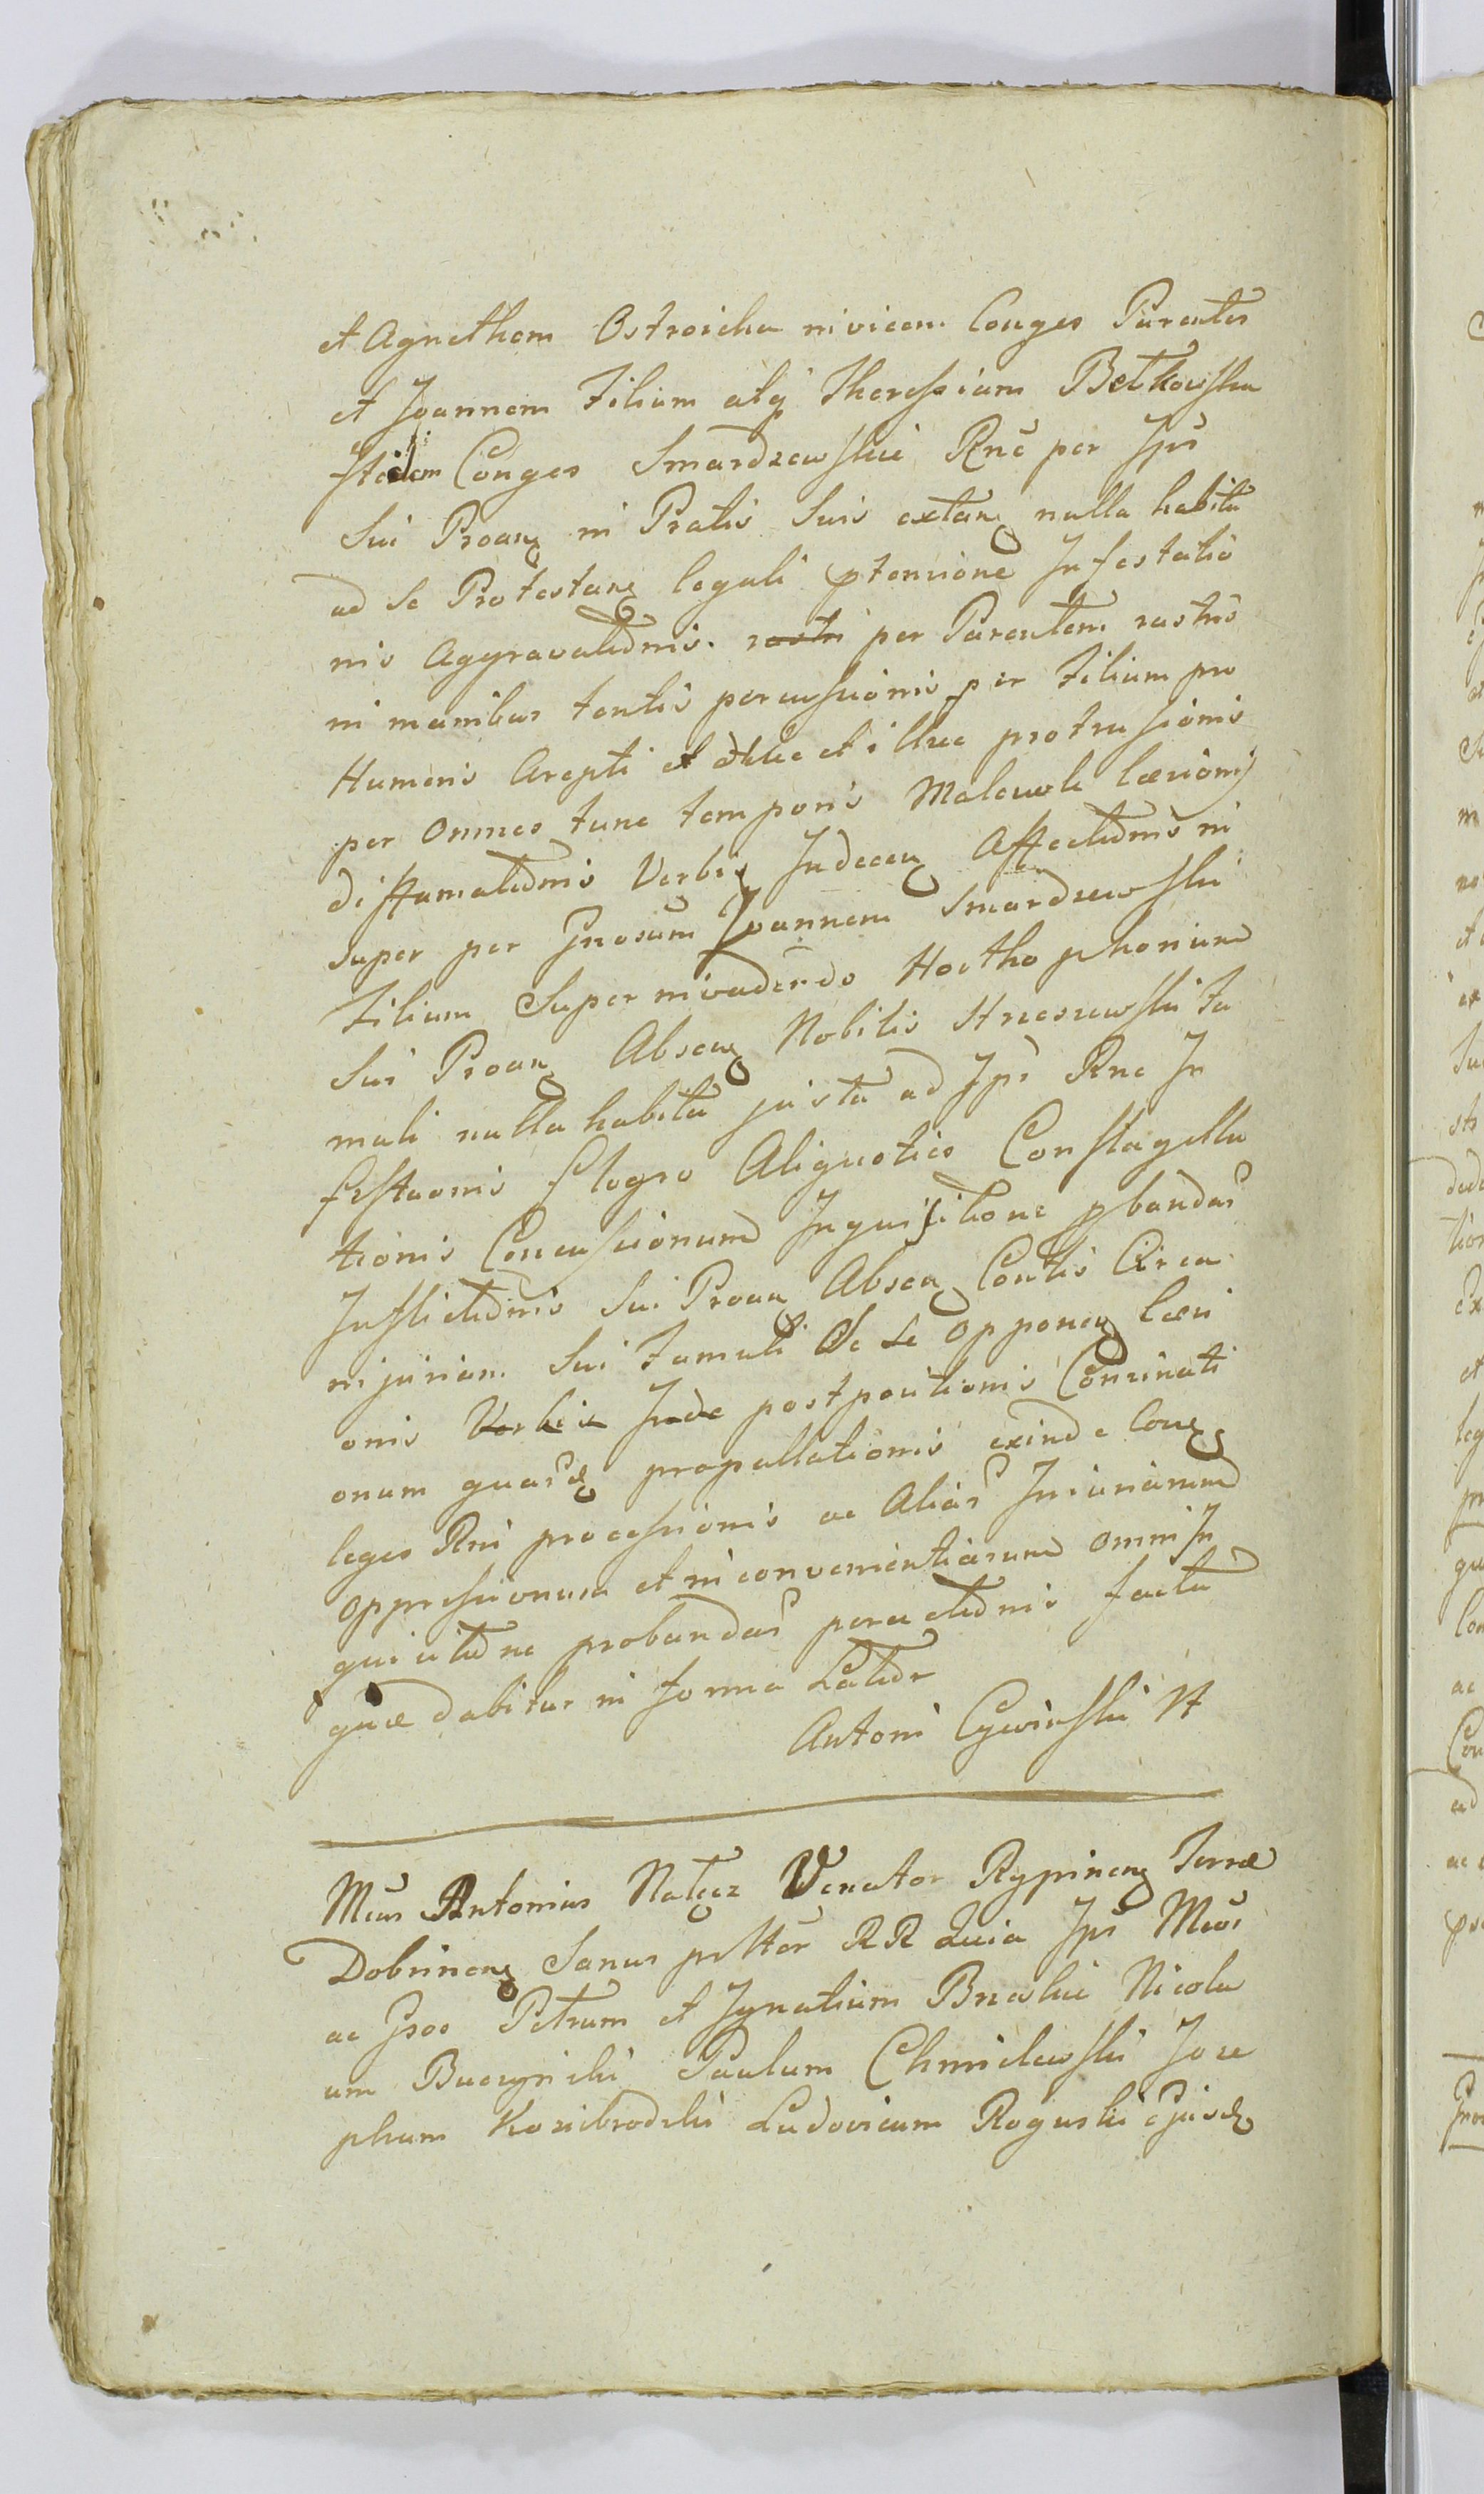 et Agnethem Ostroicka invicem Conges Parentes
et Joannem Filium atq Theressiam Betkowska
Itidem Conges Smardzewskie Rne per Ips
Sui Proanq in Pratis Suis extanq nulla habita
ad se Protestanq legali ptensione Infestatio
nis Aggravatidnis. rastri per Parentem rastris
in manibus tentis percussionis per Filium pro
Humeris Arepti et adhuc et illuc protrusionis
per omnes tunc temporis Malevole læsionis
diffamatidnis Verbis Indecenq Affectidnis in
super per Gnosum Joannem Smardzewski
Filium Superinvadendo Hoc tho phorium
Sui Proanq Absenq Nobilis Strzeszewski Fa
muli nulla habita justa ad Ips Rne In
festaonis plagro Aliquoties Conflagella
tionis Concussionum Inquisitione pbandar
Inflictidnis Sui Proanq Absenq Contis Circa
injuriam Sui Famuli Se se opponenq læsi
onis Verbis Inde postpositionis Comminati
onum quarq propallationis exinde Conq
leges Rni processionis ac Aliar Injuriarum
oppressionum et inconvenientiarum omni In
quisitidne probandar peractidnis facta
quæ dabitur in forma Latidr
Antoni Cywinski N

Mcus Antonius Nałęcz Venator Rypinenq Terræ
Dobrinenq Sanus prttēr RR Quia Ips Mcos
ac Gsos Petrum et Ignatium Brzeskie Nicola
um Buczynski Paulum Chmielewski Jose
phum Kozibrodzki Ludovicum Roguski ejusdq